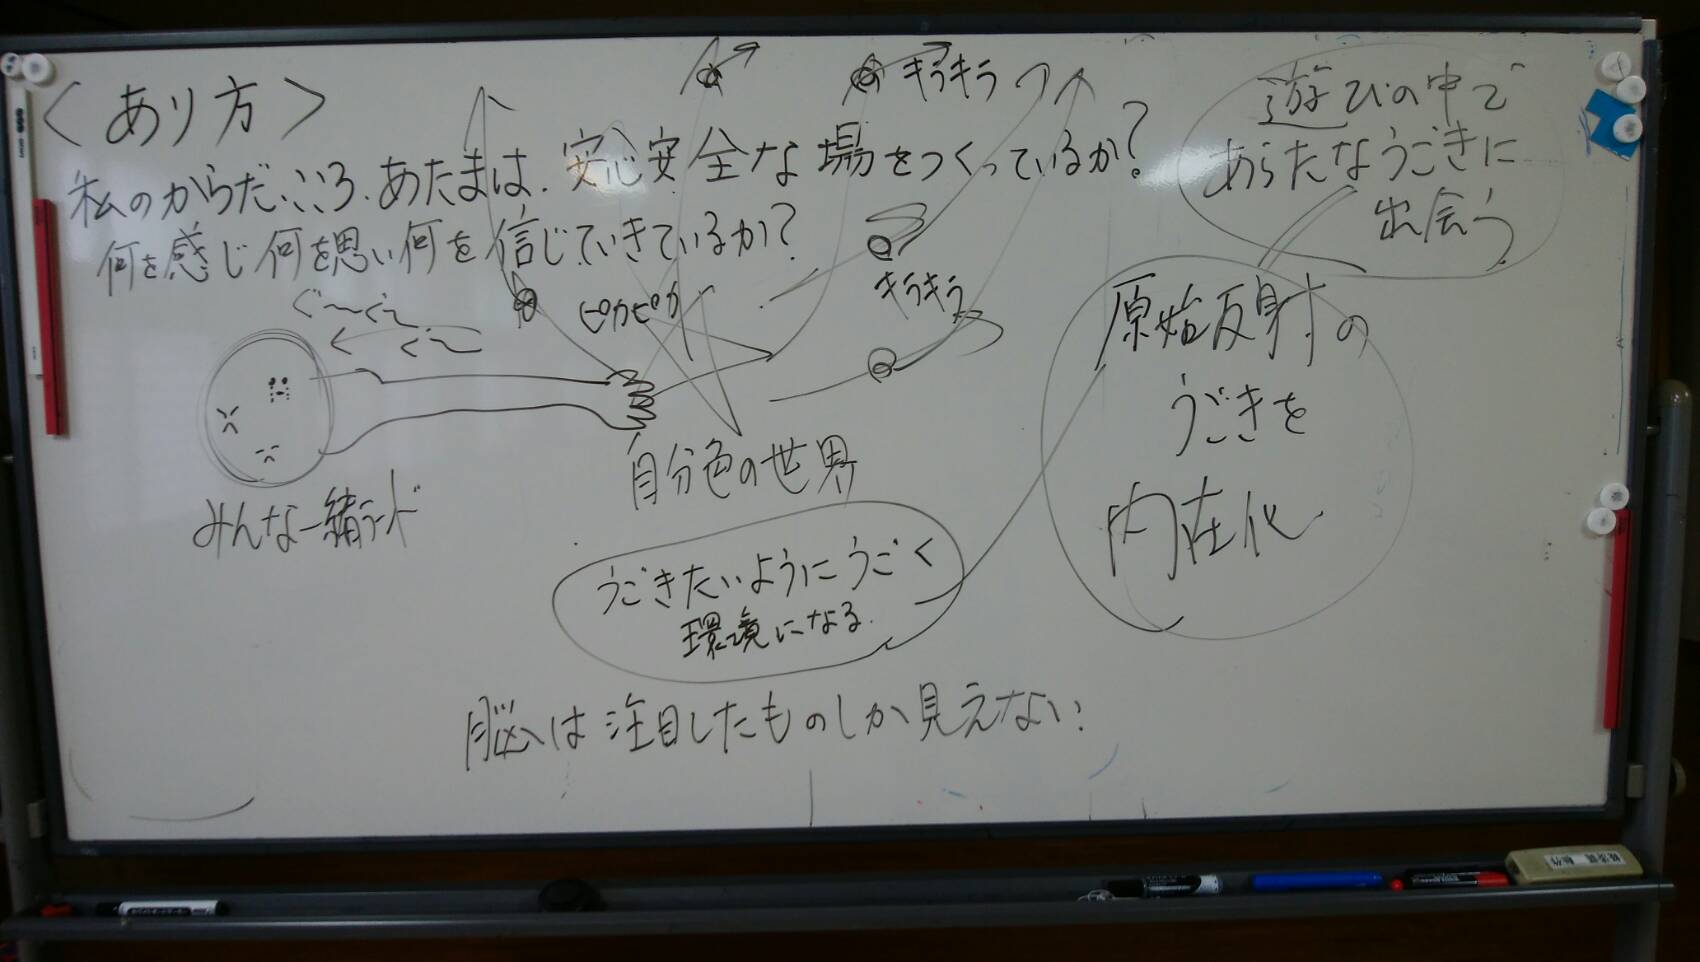 <あり方>
私のからだ.こころ.あたまは.安心安全な場をつくっているか?
何を感じ何を思い何を信じていきているか?
キラキラ
遊びの中で
あらたなうごきに
出会う
ぐ〜ぐ〜
ぐ〜
ピカピカ
キラキラ
原始反射の
うごきを
内在化
自分色の世界
みんな一緒ランド
うごきたいようにうごく
環境になる.
脳は注目したものしか見えない.